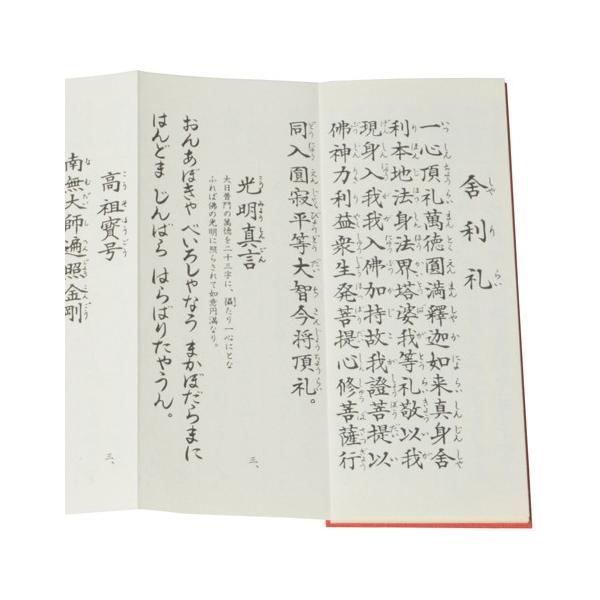 舍利礼
一心頂礼萬徳圓満釋迦如来真身舍
利本地法身法界塔婆我等礼敬以我
現身入我我入佛加持故我證菩提以
佛神力利益衆生発菩提心修菩薩行
同入圓寂平等大智今将頂礼。
光明真言
大日普門の萬徳を二十三字に、攝たり一心にとな
ふれば佛の光明に照らされて如意円満なり。
三、
おんあぼきゃ べいろしゃなう まかぼだらまに
はんどま じんばら はらばりたやうん。
高祖寳号
三、
南無大師遍照金剛